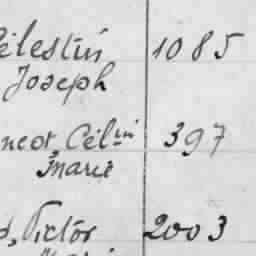 Célestin 1085
Joseph
neot, Cél.in 397
Marie
Victor 2003